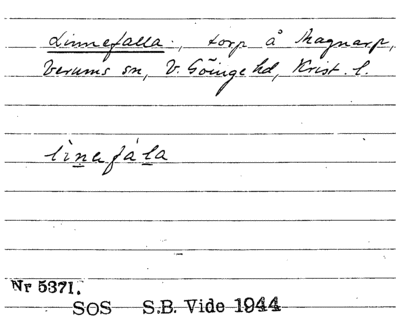 Linnefalla., torp å Magnarp,
Verums sn, V. Göinge hd, Krist. l.
lìnefála
Nr 5371.
SOS S.B. Vide 1944